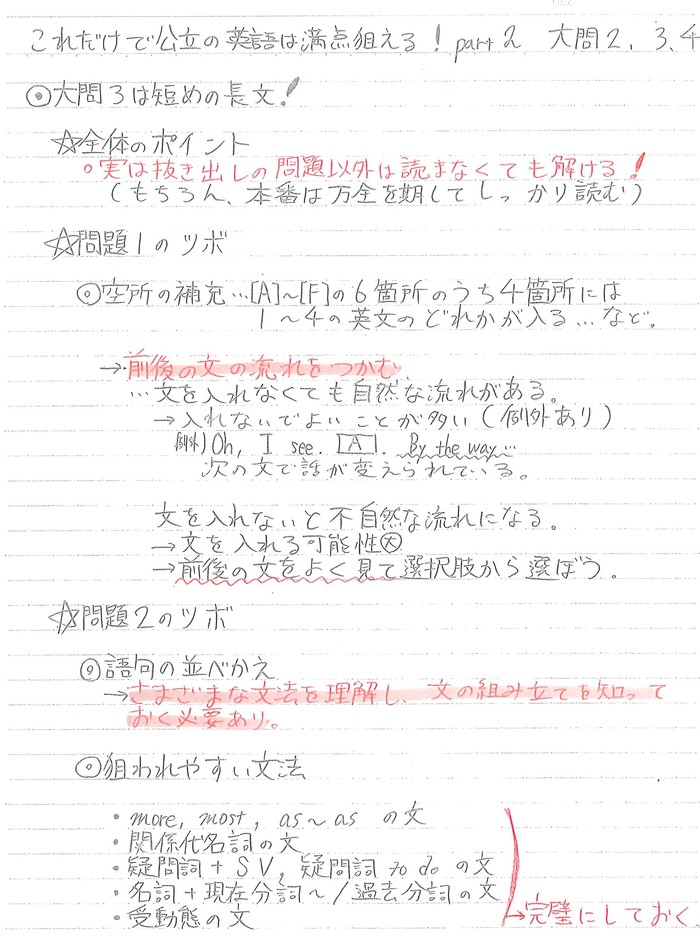 これだけで公立の英語は満点狙える! part2 大問2、3、4
◎大問3は短めの長文!
☆全体のポイント
○実は抜き出しの問題以外は読まなくても解ける!
(もちろん、本番は万全を期してしっかり読む)
☆問題1のツボ
◎空所の補充…[A]~[F]の6箇所のうち4箇所には
1~4の英文のどれかが入る…など。
→前後の文の流れをつかむ。
…文を入れなくても自然な流れがある。
→入れないでよいことが多い(例外あり)
例外) Oh, I see. [A]. By the way…
次の文で話が変えられている。
文を入れないと不自然な流れになる。
→文を入れる可能性大
→前後の文をよく見て選択肢から選ぼう。
☆問題2のツボ
◎語句の並べかえ
→さまざまな文法を理解し、文の組み立てを知って
おく必要あり。
◎狙われやすい文法
・more, most, as~as の文
・関係代名詞の文
・疑問詞+SV, 疑問詞 to do の文
・名詞+現在分詞~/過去分詞の文
・受動態の文
→完璧にしておく